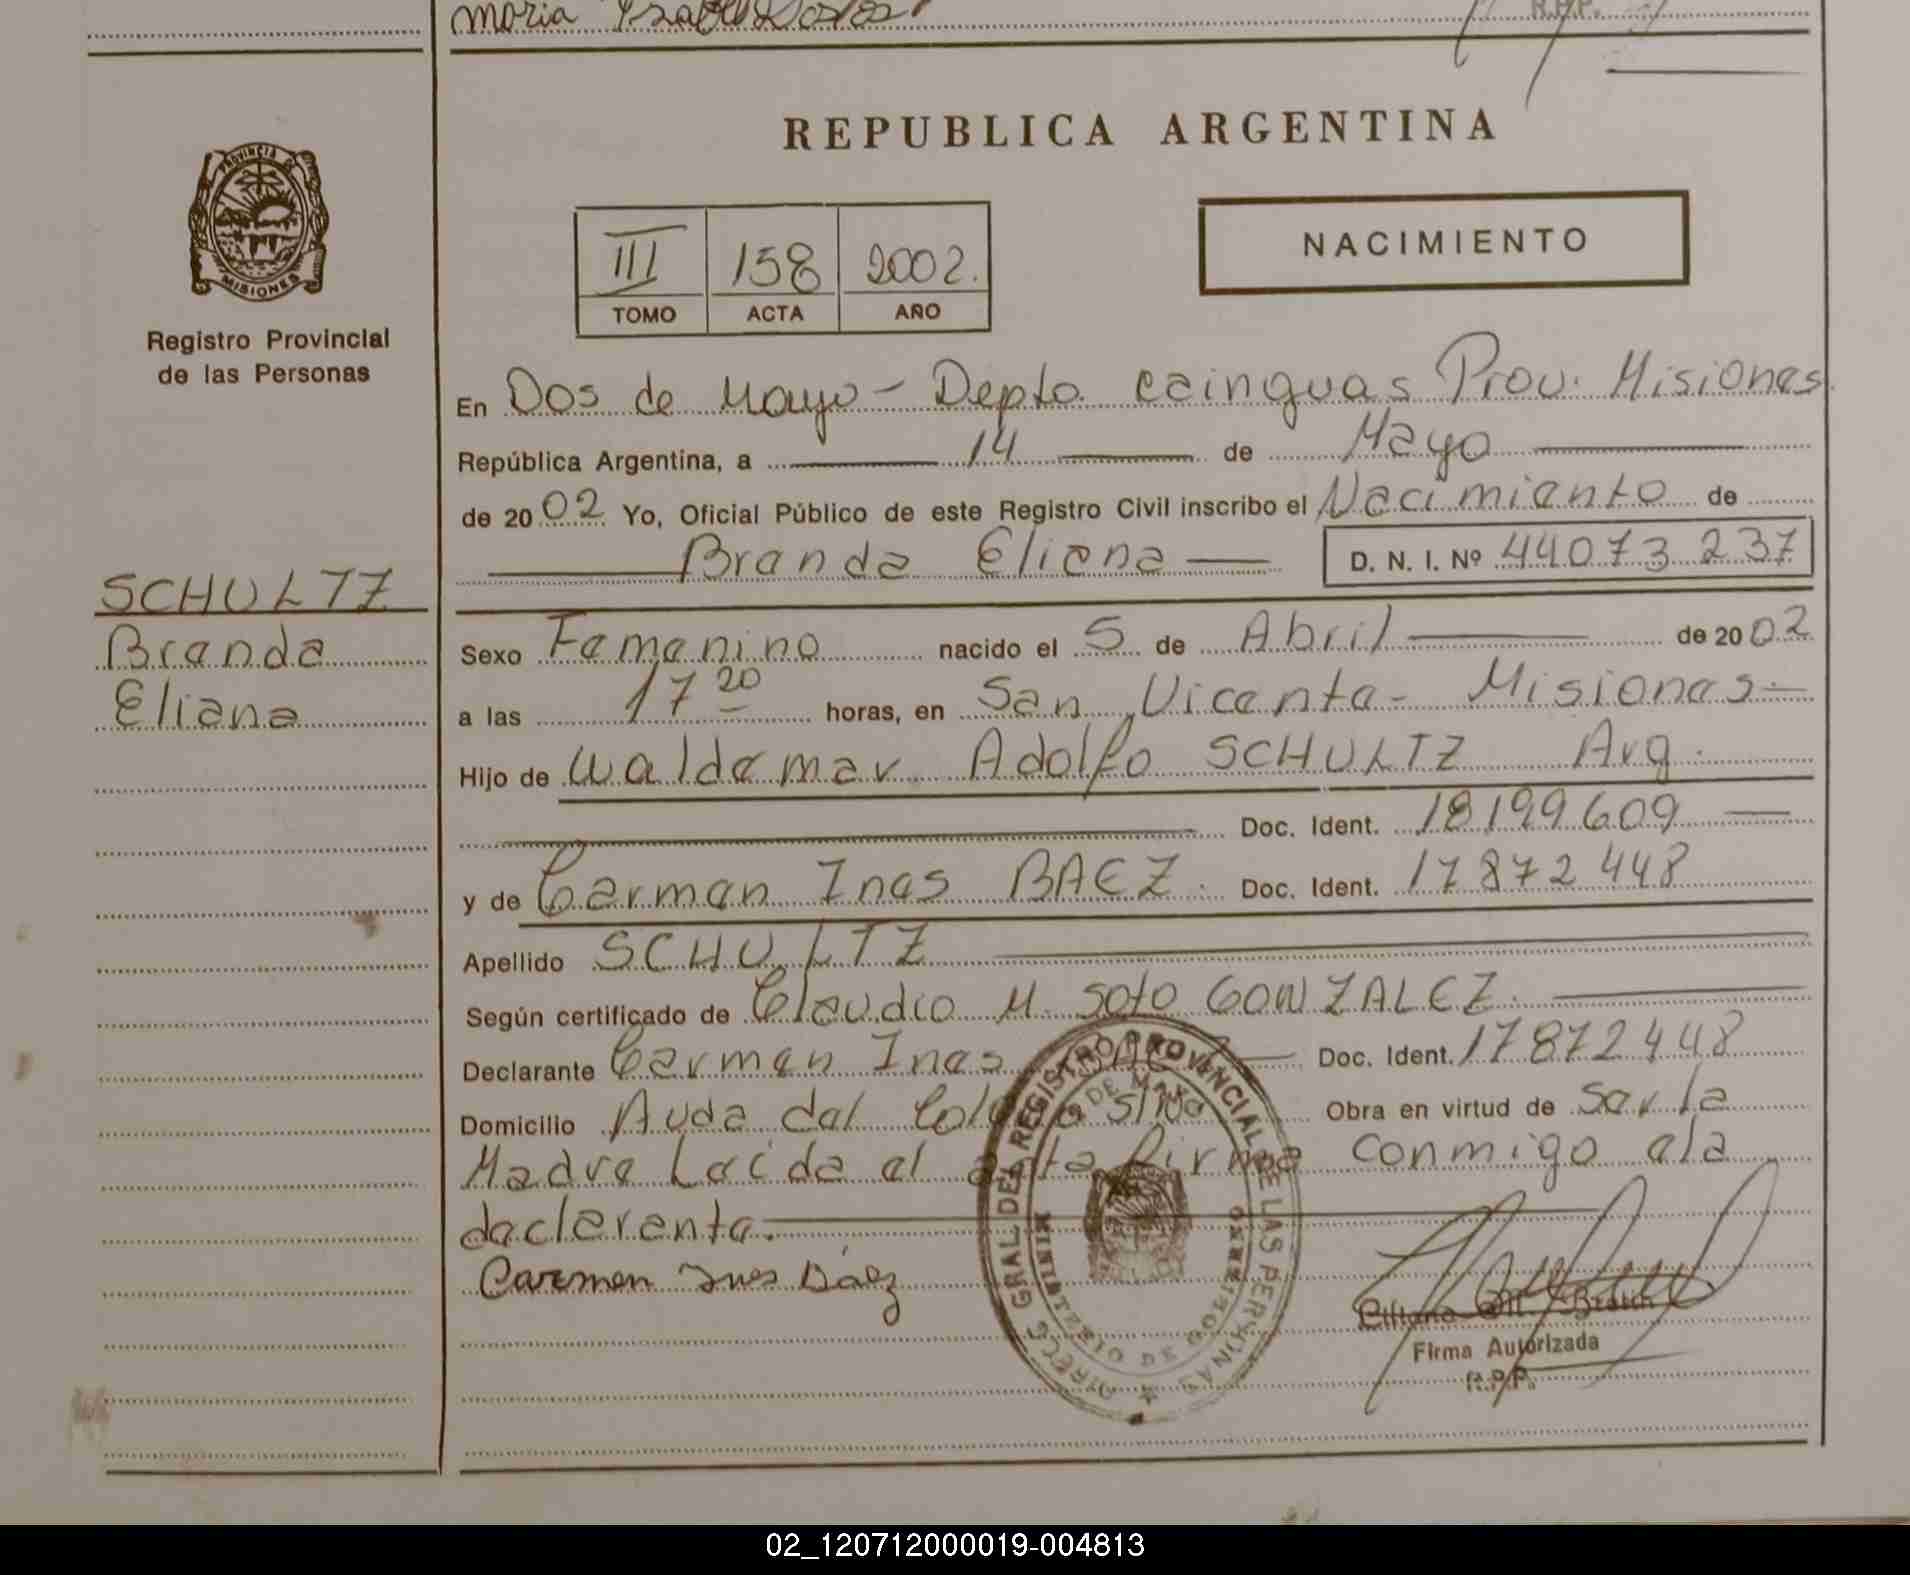 Maria Isabel
R.P.P.
REPUBLICA ARGENTINA
PROVINCIA DE
MISIONES
Registro Provincial
de las Personas
III 158 2002.
TOMO ACTA AÑO
NACIMIENTO
En Dos de Mayo - Depto. Cainguas Prov. Misiones.
República Argentina, a 14 de Mayo
de 2002 Yo, Oficial Público de este Registro Civil inscribo el Nacimiento de
Branda Eliana D. N. I. Nº 44073237
SCHULTZ
Branda
Eliana
Sexo Femenino nacido el 5 de Abril de 2002
a las 17 20 horas, en San Vicente - Misiones -
Hijo de Waldemar Adolfo SCHULTZ Arg.
Doc. Ident. 18199609
y de Carmen Ines BAEZ. Doc. Ident. 17872448
Apellido SCHULTZ
Según certificado de Claudio M. Soto GONZALEZ.
Declarante Carmen Ines Doc. Ident. 17872448
Domicilio Avda del S/Nº Obra en virtud de Ser la
Madre Leída el acta firma conmigo a la
declarante.
Carmen Ines Báez
DIREC. GRAL DEL REGISTRO PROVINCIAL DE LAS PERSONAS
MINISTERIO DE GOBIERNO
DE MAYO
Firma Autorizada
R.P.P.
02_120712000019-004813